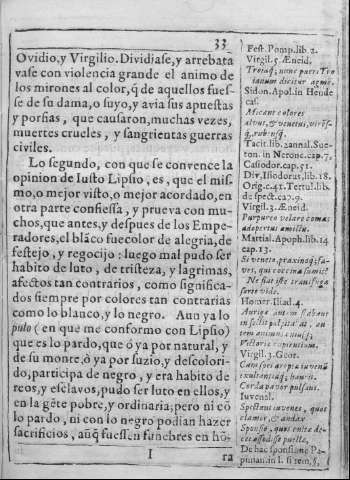 33
Ovidio, y Virgilio. Dividiase, y arrebata
vase con violencia grande el animo de
los mirones al color, q̃ de aquellos fues-
se de su dama, o suyo, y avia sus apuestas
y porfias, que causaron, muchas vezes,
muertes crueles, y sangrientas guerras
civiles.
Lo segundo, con que se convence la
opinion de Iusto Lipsio, es, que el mis-
mo, o mejor visto, o mejor acordado, en
otra parte confiessa, y prueva con mu-
chos, que antes, y despues de los Empe-
radores, el blãco fue color de alegria, de
festejo, y regocijo: luego mal pudo ser
habito de luto, de tristeza, y lagrimas,
afectos tan contrarios, como significa-
dos siempre por colores tan contrarias
como lo blanco, y lo negro. Aun ya lo
pulo (en que me conformo con Lipsio)
que es lo pardo, que ò ya por natural, y
de su monte, ò ya por suzio, y descolori-
do, participa de negro, y era habito de
reos, y esclavos, pudo ser luto en ellos, y
en la gẽte pobre, y ordinaria; pero ni cõ
lo pardo, ni con lo negro podian hazer
sacrificios, aũq̃ fuessen funebres en hõ-
I
ra
Fest. Pomp. lib. 2.
Virgil. 5. Æneid.
Troiaq; nunc pueri Tro
ianum dicitur agmẽ.
Sidon. Apol. in Hende
cas.
Micant colores
Tacit. lib. 2. annal. Sue-
ton. in Nerone. cap. 7.
Casiodor. cap. 51.
Div. Issodorus, lib. 18.
Orig. c. 41. Tertul. lib.
de spect. cap. 9.
Virgil. 3. Æneid.
Purpureo velare comas
adopertus amictu.
Martial. Apoph. lib. 14
cap. 13.
Si veneto, prasinoq; fa-
ves, qui coccina sumis?
Homer. Iliad. 4.
Virgil. 3. Geor.
Iuvenal.
Spectent iuvenes, quos
clamor, & audax